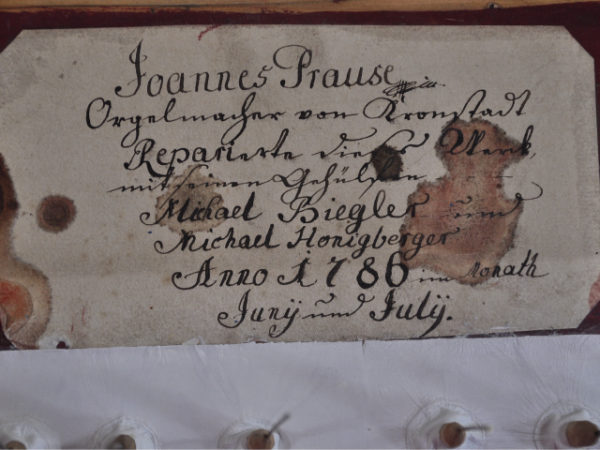 Joannes Prause
Orgelmacher von Kronstadt
Reparierte dieses Werk,
mit seinen Gehülffen
Michael Biegler und
Michael Honigberger
Anno 1786 im Monath
Junÿ und Julÿ.